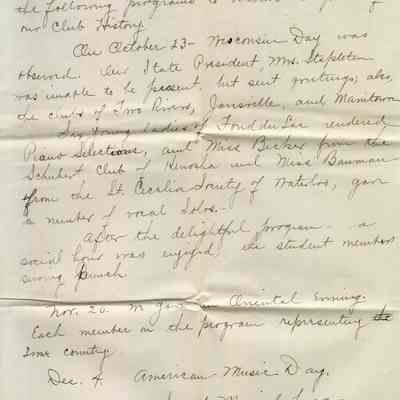 the following programs to
our Club History.
On October 23 - Wisconsin Day was
observed. Our State President, Mrs. Stapleton
was unable to be present, but sent greetings; also,
the clubs of Two Rivers, Janesville, and Manitowoc
Six Young Ladies of Fond du Lac rendered
Piano Selections, and Miss Becker from the
Schubert Club of Kenosha and Miss Bauman
from the St. Cecilia Society of Waterloo, gave
a number of vocal Solos.
After the delightful program - a
social hour was enjoyed, the student members
serving punch.
Nov. 20. Oriental Evening.
Each member on the program representing the
some country.
Dec. 4. American Music Day.